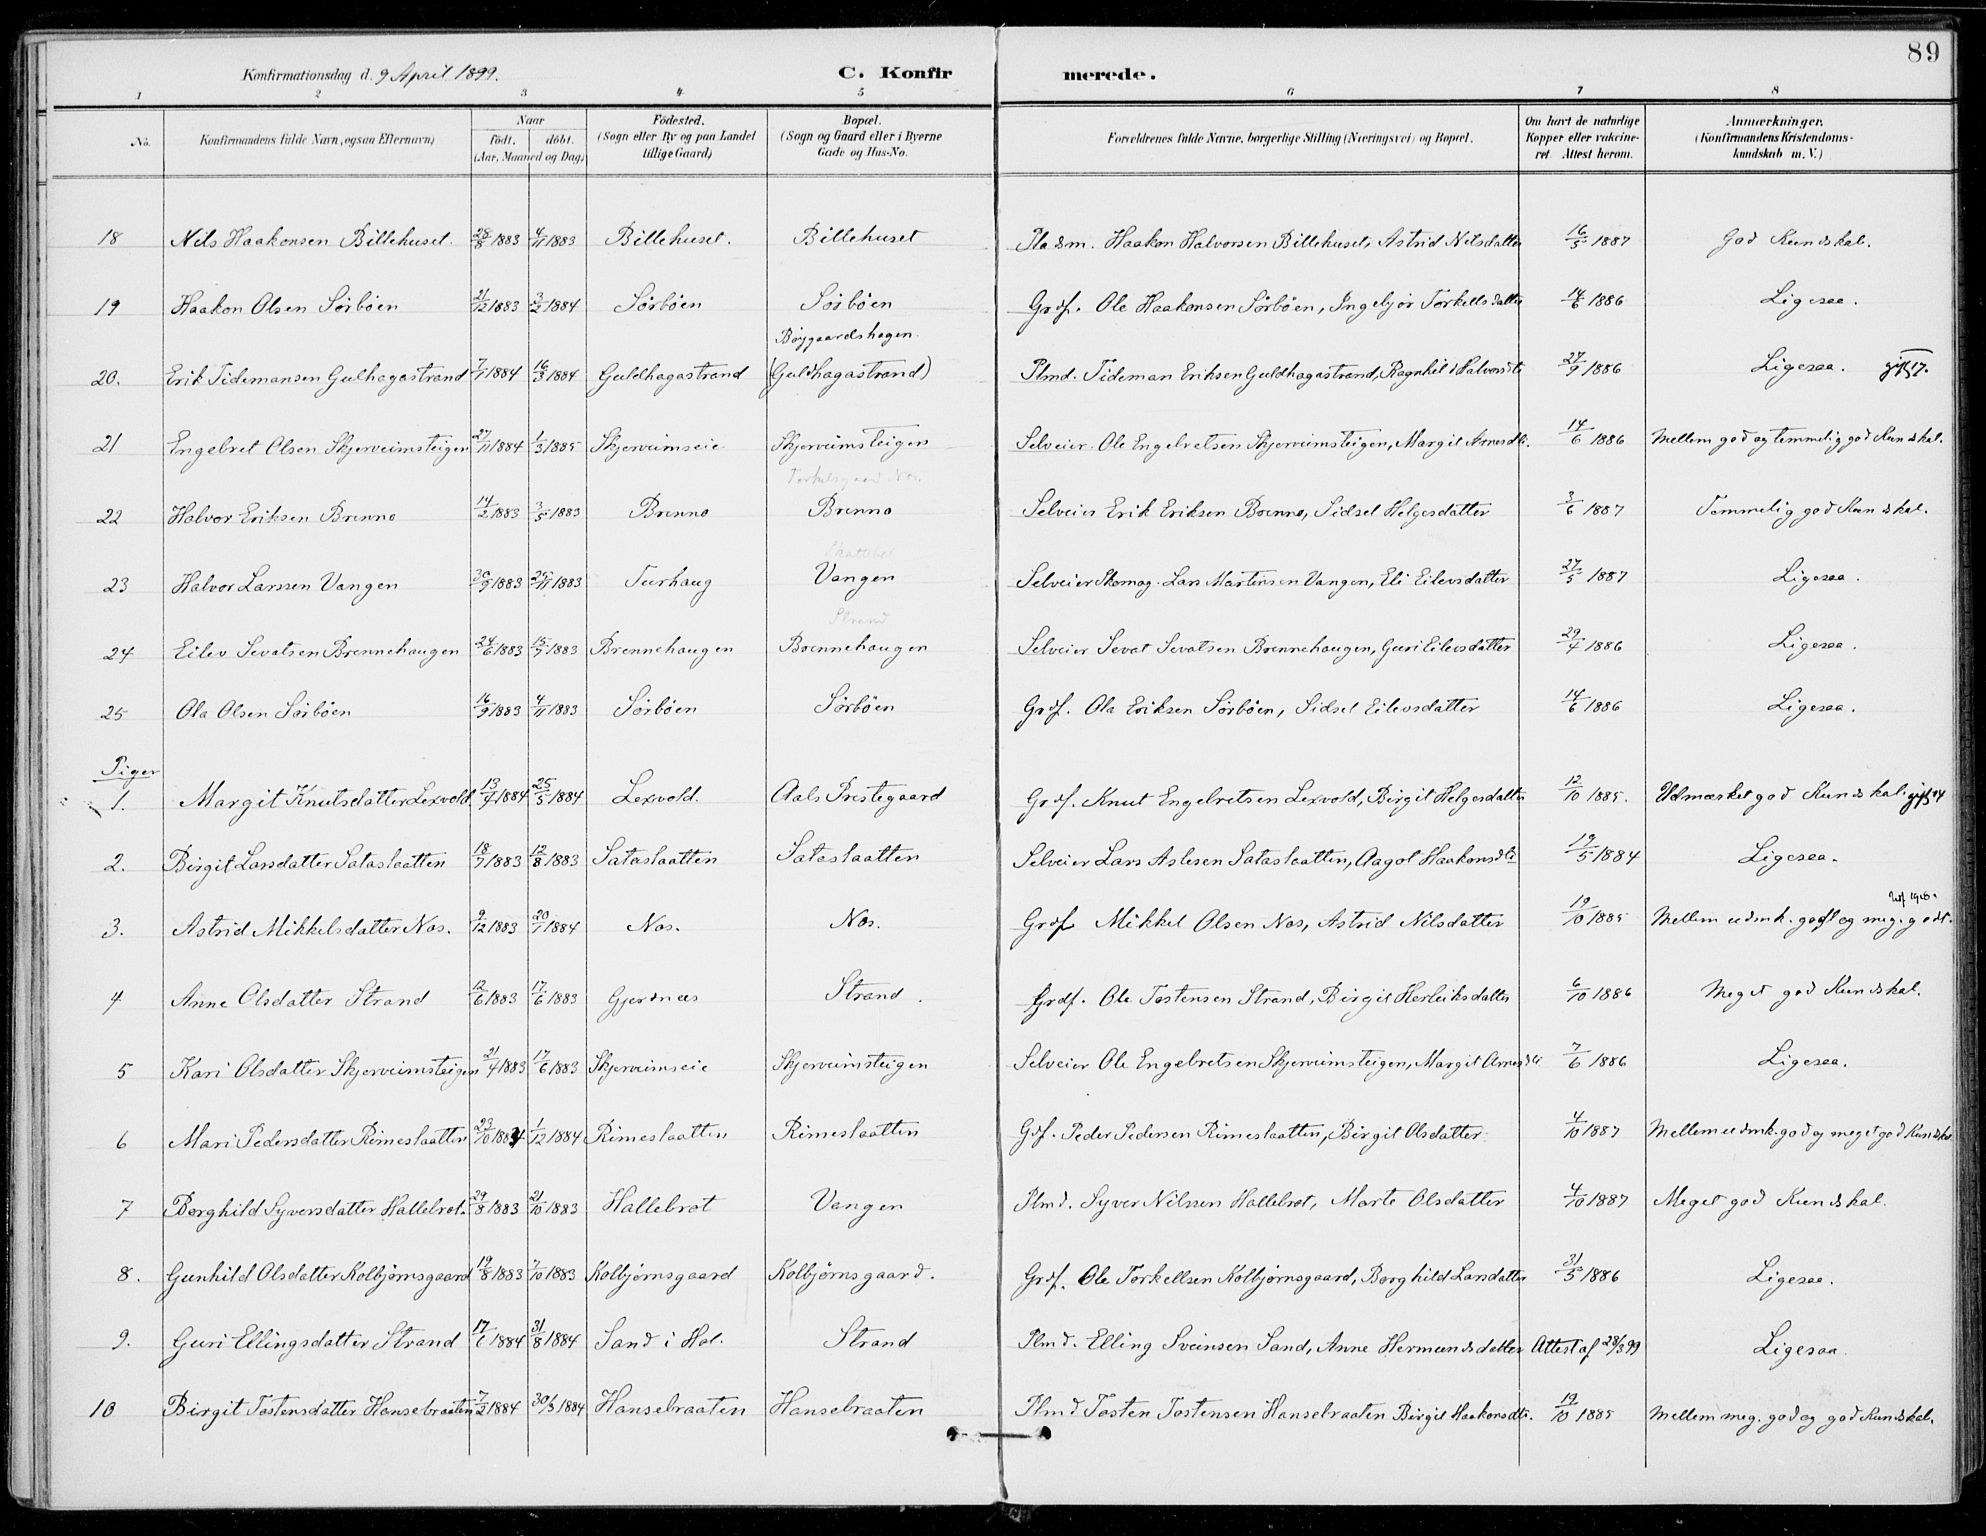 89
Konfirmationsdag d. 9 April 1899. C. Konfirmerede.
1 2 3 4 5 6 7 8
No. Konfirmandens fulde Navn, ogsaa Efternavn) Naar födt. döbt. (Aar, Maaned og Dag) Födested. (Sogn eller By og paa Landet tillige Gaard) Bopæl. (Sogn og Gaard eller i Byerne Gade og Hus-No. Forældrenes fulde Navne, borgerlige Stilling (Næringsvei) og Bopæl. Om havt de naturlige Kopper eller vakcineret. Attest herom. Anmærkninger. (Konfirmandens Kristendomskundskab m. V.)
18 Nils Haakonsen Billehuset. 28/8 1883 4/11 1883 Billehuset. Billehuset Pladsm. Haakon Halvorsen Billehuset, Astrid Nilsdatter 16/5 1887 God Kundskab.
19 Haakon Olsen Sørbøen 21/12 1883 3/2 1884 Sørbøen Sørbøen Grdf. Ole Haakonsen Sørbøen, Ingebjør Torkellsdatter 14/6 1886 Ligesaa.
Bøygaardshagen.
20. Erik Tidemansen Gulhagastrand 7/1 1884 16/3 1884 Guldhagastrand (Guldhagastrand) Plmd. Tideman Eriksen Guldhagastrand, Ragnhild Halvorsdtr 27/9 1886 Ligesaa. gift 17.
21 Engebret Olsen Skjerveimsteigen 27/11 1884 1/3 1885 Skjerveimseie Skjerveimsteigen Selveier. Ole Engebretsen Skjerveimsteigen, Margit Arnesdtr. 14/6 1886 Mellem god og temmelig god Kundskab.
Torkelsgaard Nes.
22 Halvor Eriksen Brenno 14/2 1883 3/5 1883 Brenno Brenno Selveier Erik Eriksen Brenno, Sidsel Helgesdatter 3/6 1887 Temmelig god Kundskab.
23 Halvor Larssen Vangen 30/9 1883 25/11 1883 Turhaug Vangen Selveier Skomag. Lars Martinsen Vangen, Eli Eilevsdatter 27/5 1887 Ligesaa.
Strand
24 Eilev Sevatsen Brennehaugen 24/6 1883 15/7 1883 Brennehaugen Brennehaugen Selveier Sevat Sevatsen Brennehaugen, Guri Eilevsdatter 29/4 1886 Ligesaa.
25 Ola Olsen Sørbøen 16/9 1883 4/11 1883 Sørbøen Sørbøen Grdf. Ola Eriksen Sørbøen, Sidsel Eilevsdatter 14/6 1886 Ligesaa.
Piger
1. Margit Knutsdatter Lexvold 13/4 1884 25/5 1884 Lexvold. Aals Prestegaard Grdf. Knut Engebretsen Lexvold, Birgit Helgesdatter 12/10 1885. Udmærket god Kundskab. gift 14
2. Birgit Larsdatter Sataslaatten 18/7 1883 12/8 1883 Sataslaatten Sataslaatten Selveier Lars Aslesen Sataslaatten, Aagot Haakonsdtr 19/5 1884 Ligesaa.
3. Astrid Mikkelsdatter Nos. 9/12 1883 20/1 1884 Nos. Nos. Grdf Mikkel Olsen Nos, Astrid Nilsdatter 19/10 1885 Mellem udmk. godt og meg. godt.
4 Anne Olsdatter Strand 12/6 1883 17/6 1883 Gjerdnæs Strand. Grdf. Ole Tostensen Strand, Birgit Herleiksdatter 6/10 1886 Meget god Kundskab.
5 Kari Olsdatter Skjerveimsteigen 21/4 1883 17/6 1883 Skjerveimseie Skjerveimsteigen Selveier Ole Engebretsen Skjerveimsteigen, Margit Arnesdtr 7/6 1886 Ligesaa.
6 Mari Pedersdatter Rimeslaatten 23/10 1884 1/12 1884 Rimeslaatten Rimeslaatten Gdf. Peder Pedersen Rimeslaatten, Birgit Olsdatter 4/10 1887 Mellem udmk. god og meget god Kundskab
7 Borghild Syversdatter Hallebrot. 29/8 1883 21/10 1883 Hallebrot Vangen Plmd. Syver Nilssen Hallebrot, Marte Olsdatter 4/10 1887 Meget god Kundskab.
8. Gunhild Olsdatter Kolbjørnsgaard 19/8 1883 7/10 1883 Kolbjørnsgaard Kolbjørnsgaard. Grdf. Ole Torkellsen Kolbjørnsgaard, Borghild Larsdatter 31/5 1886 Ligesaa.
9. Guri Ellingsdatter Strand 17/6 1884 31/8 1884 Sand i Hol. Strand Plmd. Elling Sveinsen Sand, Anne Hermundsdatter Attest af 28/3 99 Ligesaa.
10 Birgit Tostensdatter Hansebraaten 7/2 1884 30/3 1884 Hansebraaten Hansebraaten Plmd Tosten Tostensen Hansebraaten Birgit Haakonsdtr. 19/10 1885 Mellem meg. god og god Kundskab.